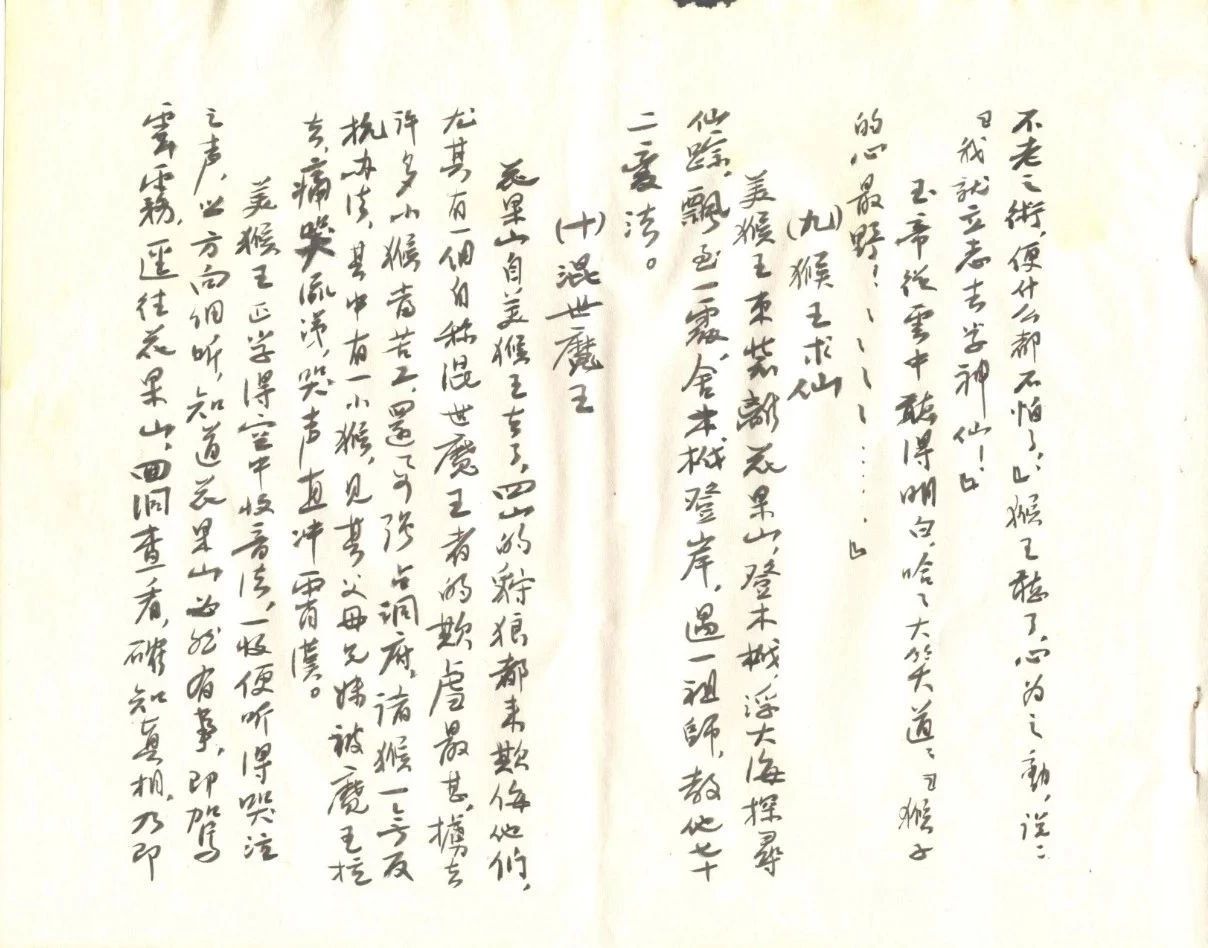 不老之術，便什么都不怕了。』猴王聽了，心为之動，说：
『我就立志去学神仙！』
玉帝從雲中聽得明白，哈哈大笑道：『猴子
的心最野！……』
(九)猴王求仙
美猴王束裝離花果山，登木栰，浮大海探尋
仙踪，飄至一處，舍木栰登岸，遇一祖師，教他七十
二变法。
(十)混世魔王
花果山自美猴王去了，四山的豺狼都来欺侮他们，
尤其有一個自称混世魔王者的欺虐最甚，擄去
许多小猴當苦工，還要强占洞府，诸猴一无反
抗办法，其中有一小猴，见其父母兄妹被魔王拉
去，痛哭流涕，哭声直冲霄漢。
美猴王正学得空中收音法，一收便听得哭泣
之声，逆方向细听，知道花果山必然有事，即駕
雲霧，逕往花果山，回洞查看，確知真相，乃即